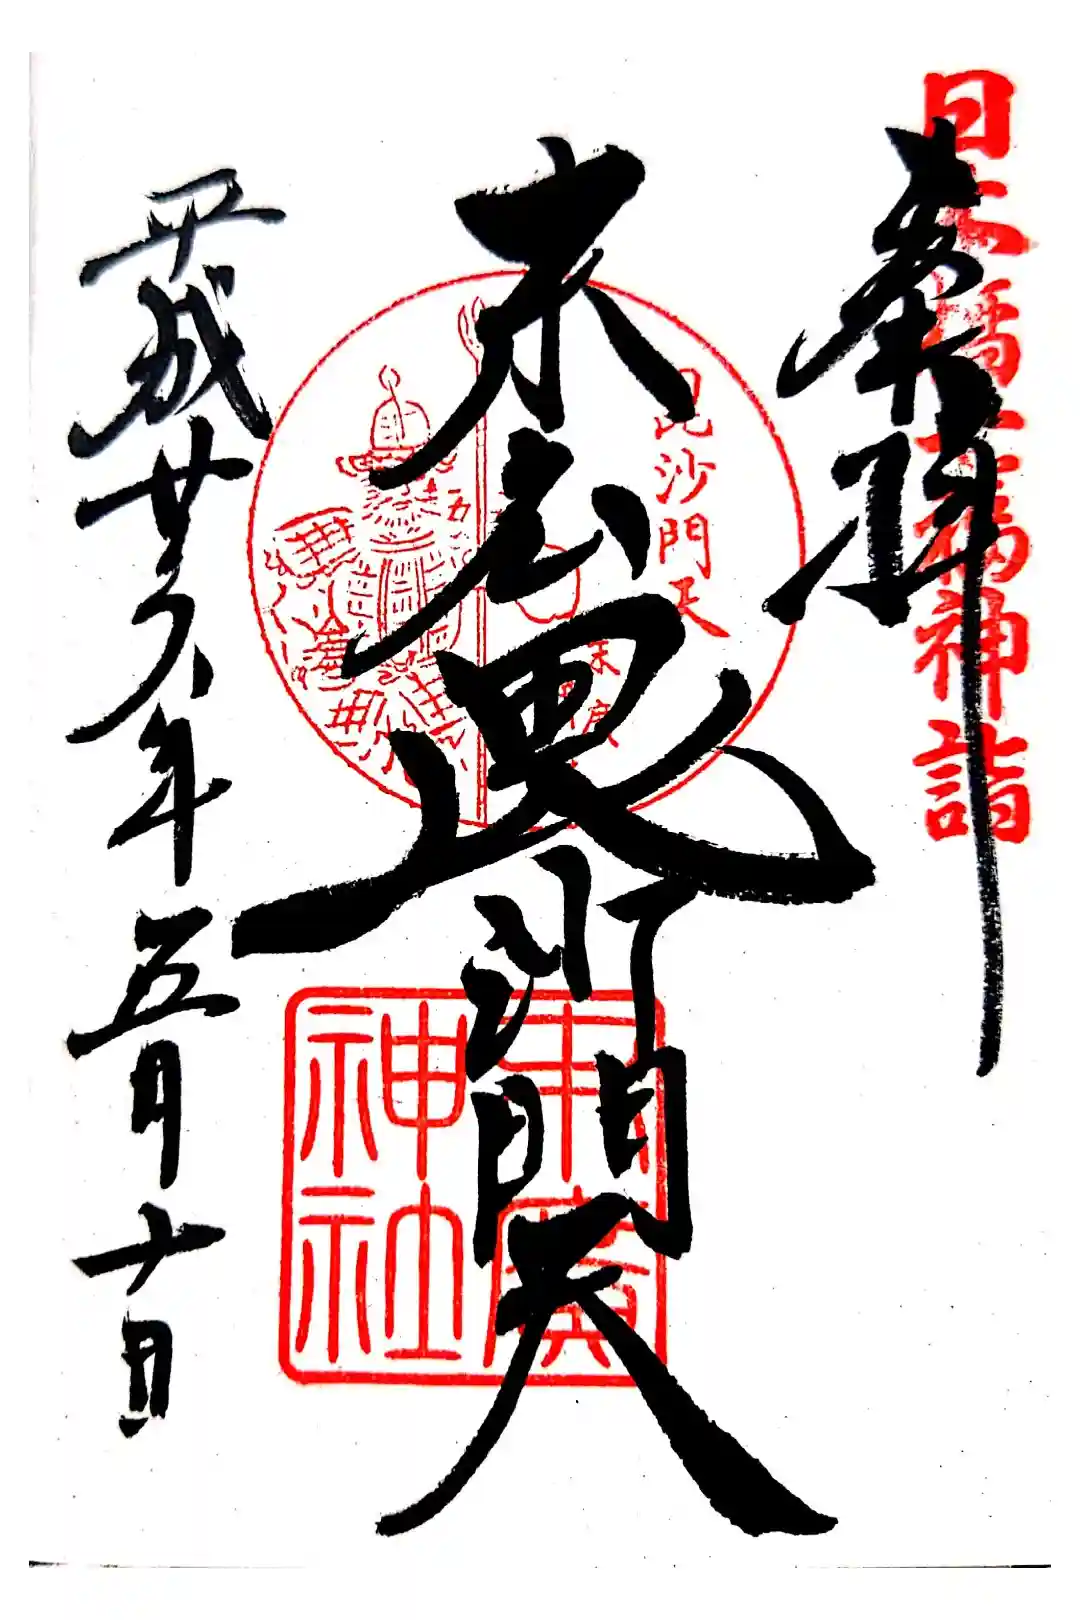 日本橋七福神詣
奉拝
末廣毘沙門天
毘沙門天
末廣神社
平成廿六年五月十日